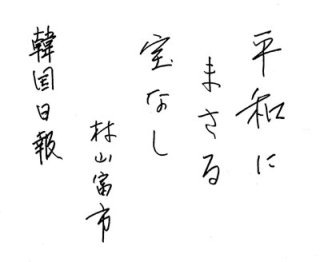 平和に
まさる
宝なし
村山富市
韓国日報